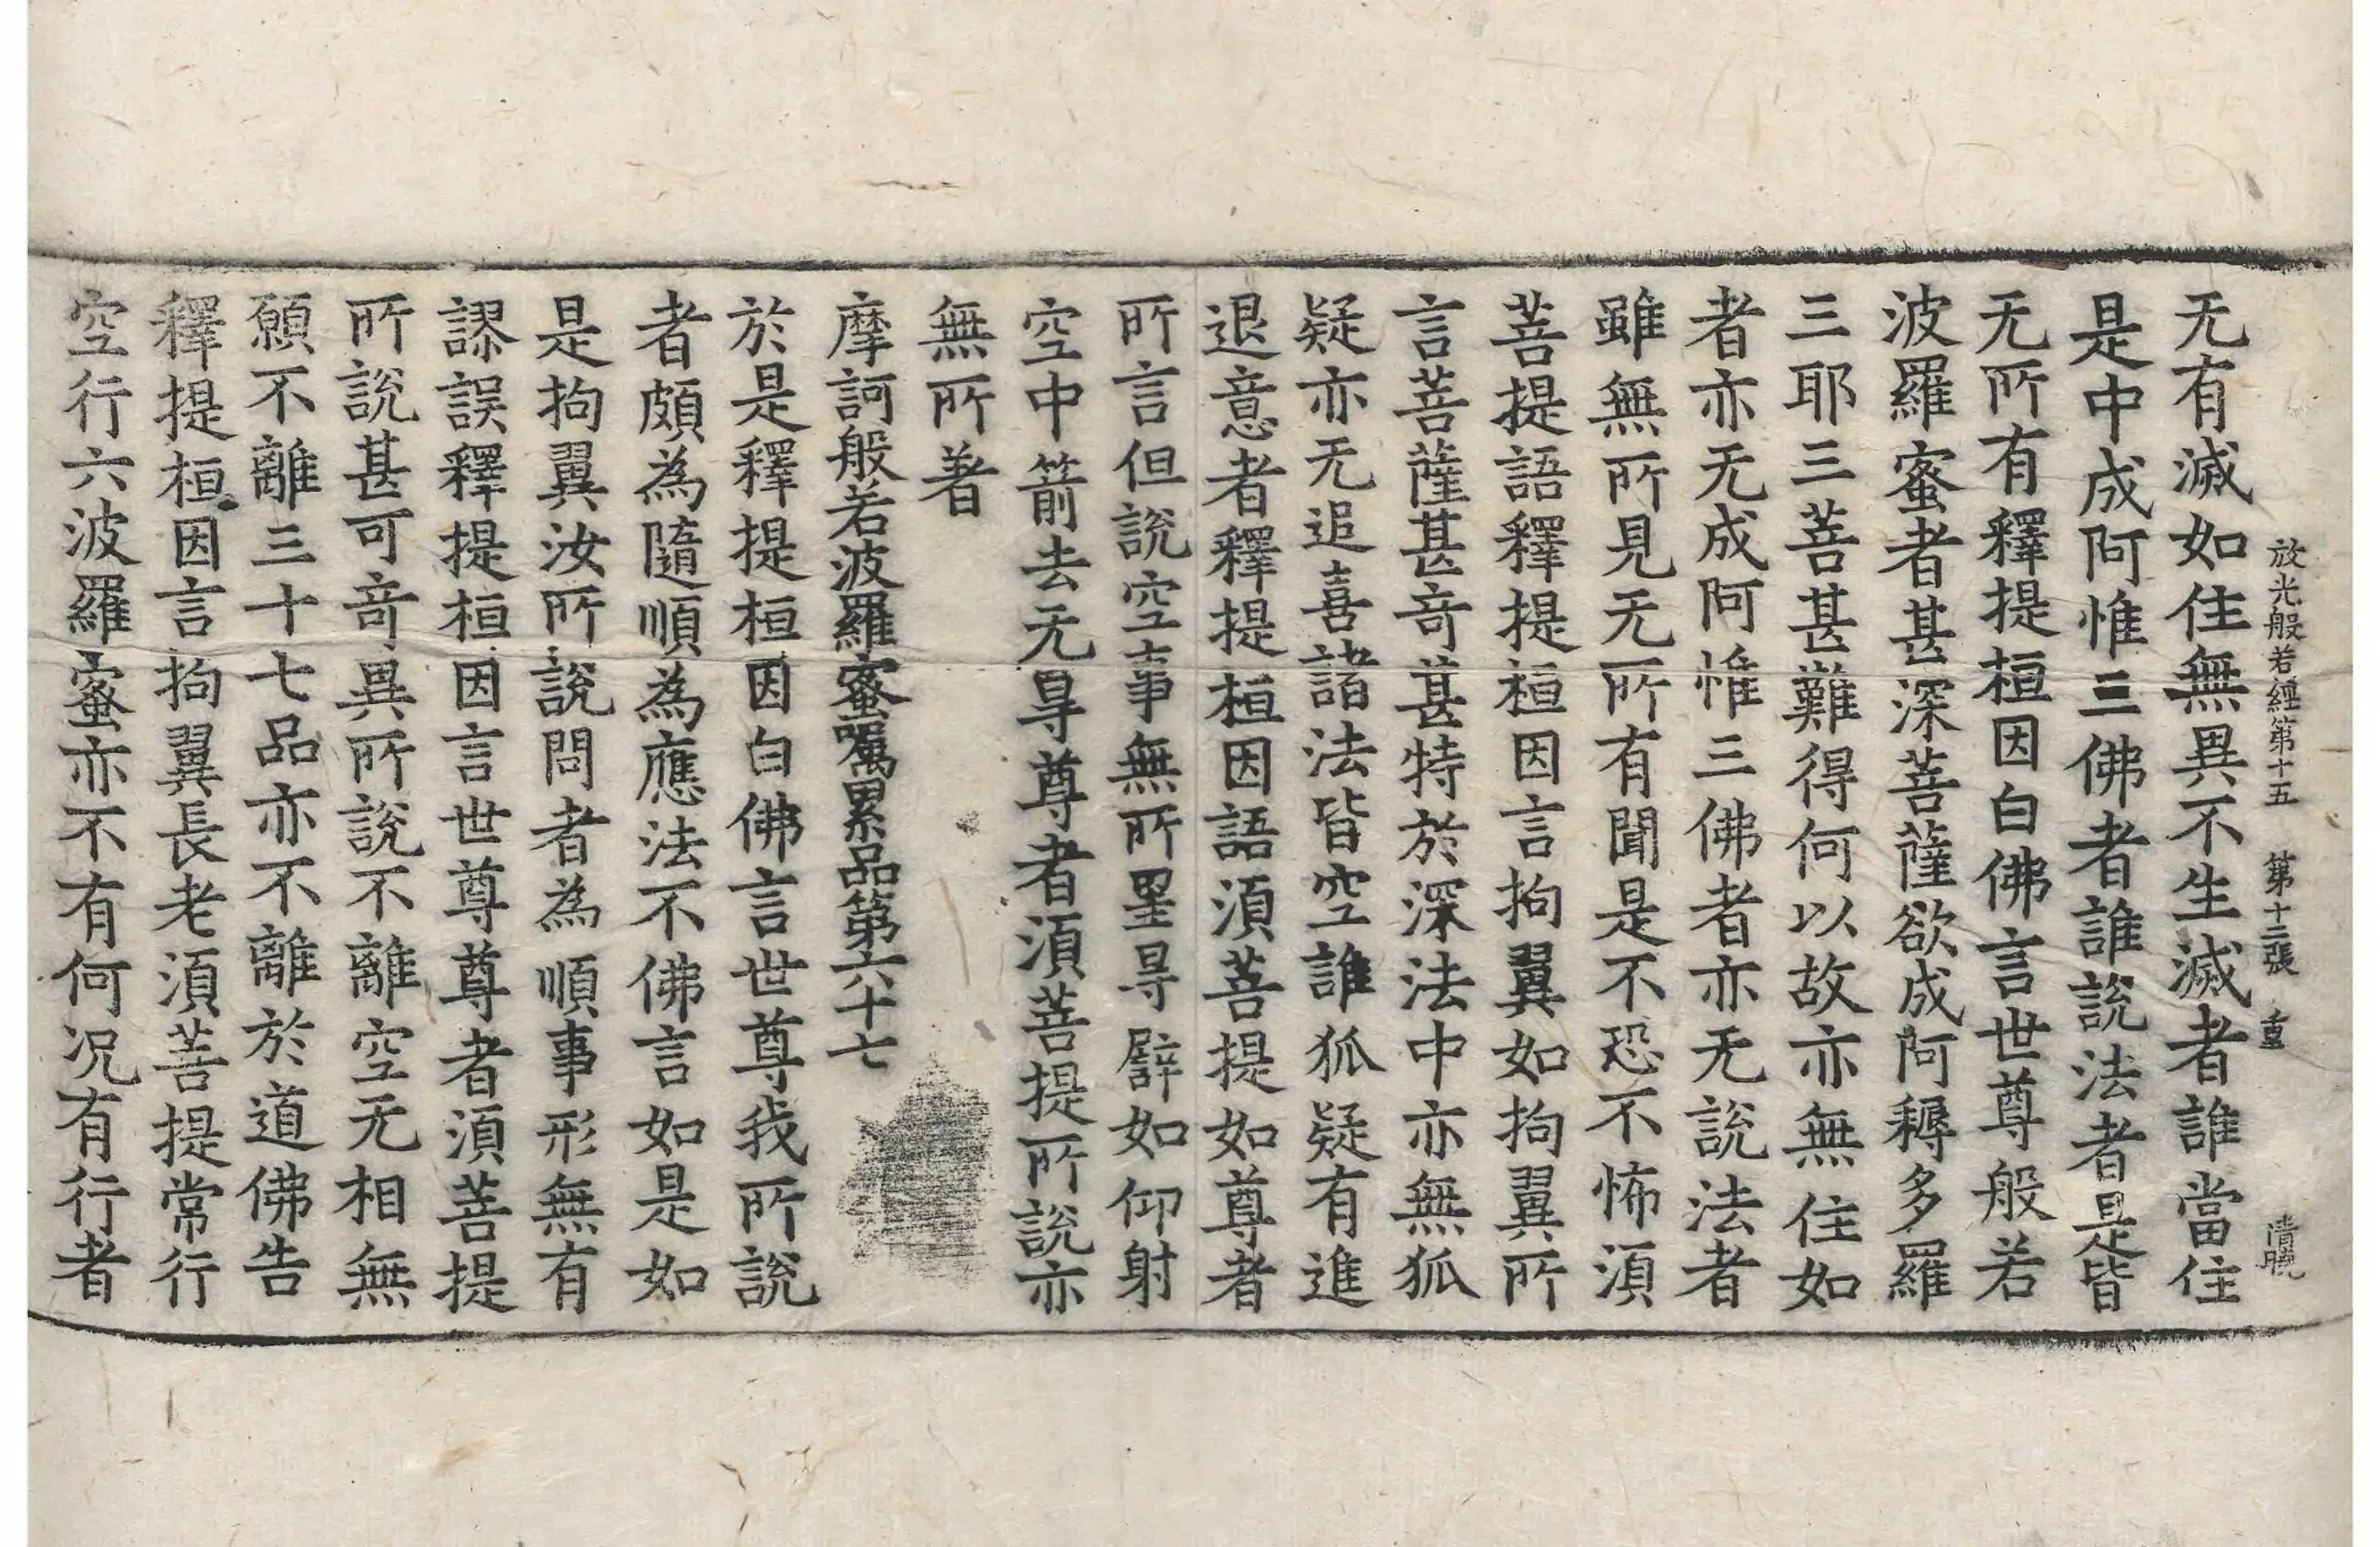 放光般若經第十五 第十二張 重 清曉
无有滅如住無異不生滅者誰當住
是中成阿惟三佛者誰說法者是皆
无所有釋提桓因白佛言世尊般若
波羅蜜者甚深菩薩欲成阿耨多羅
三耶三菩甚難得何以故亦無住如
者亦无成阿惟三佛者亦无說法者
雖無所見无所有聞是不恐不怖湏
菩提語釋提桓因言拘翼如拘翼所
言菩薩甚竒甚特於深法中亦無狐
疑亦无追喜諸法皆空誰狐疑有進
退意者釋提桓因語湏菩提如尊者
所言但說空事無所罣㝵譬如仰射
空中箭去无㝵尊者湏菩提所說亦
無所著
摩訶般若波羅蜜嘱累品第六十七
於是釋提桓因白佛言世尊我所說
者頗為隨順為應法不佛言如是如
是拘翼汝所說問者為順事形無有
謬誤釋提桓因言世尊尊者湏菩提
所說甚可竒異所說不離空无相無
願不離三十七品亦不離於道佛告
釋提桓因言拘翼長老湏菩提常行
空行六波羅蜜亦不有何况有行者